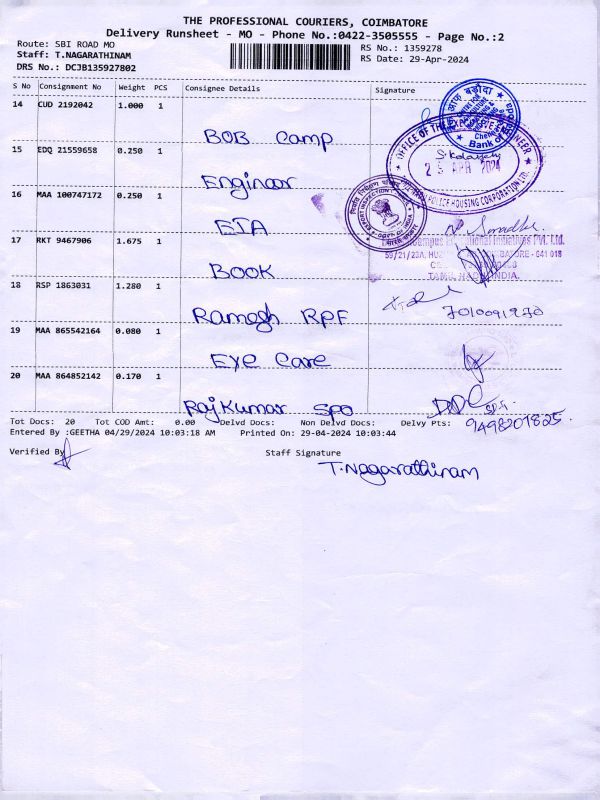 THE PROFESSIONAL COURIERS, COIMBATORE
Delivery Runsheet - MO - Phone No.:0422-3505555 - Page No.:2
Route: SBI ROAD MO
RS No.: 1359278
Staff: T.NAGARATHINAM
RS Date: 29-Apr-2024
DRS No.: DCJB135927802
S No Consignment No Weight PCS Consignee Details Signature
14 CUD 2192042 1.000 1
BOB Camp
Bank of
15 EDQ 21559658 0.250 1
OFFICE OF THE EXECUTIVE ENGINEER
POLICE HOUSING CORPORATION LTD.
APR 2024
Engineer
16 MAA 100747172 0.250 1
EIA
17 RKT 9467906 1.675 1
Initiatives Pvt. Ltd.
641 018
TAMIL INDIA.
BOOK
18 RSP 1863031 1.280 1
Ramesh RPF
7010091970
19 MAA 865542164 0.080 1
Eye Care
20 MAA 864852142 0.170 1
RajKumar SPO
Tot Docs: 20 Tot COD Amt: 0.00 Delvd Docs: Non Delvd Docs: Delvy Pts:
9498201825.
Entered By :GEETHA 04/29/2024 10:03:18 AM Printed On: 29-04-2024 10:03:44
Verified By Staff Signature
T.Nagarathinam